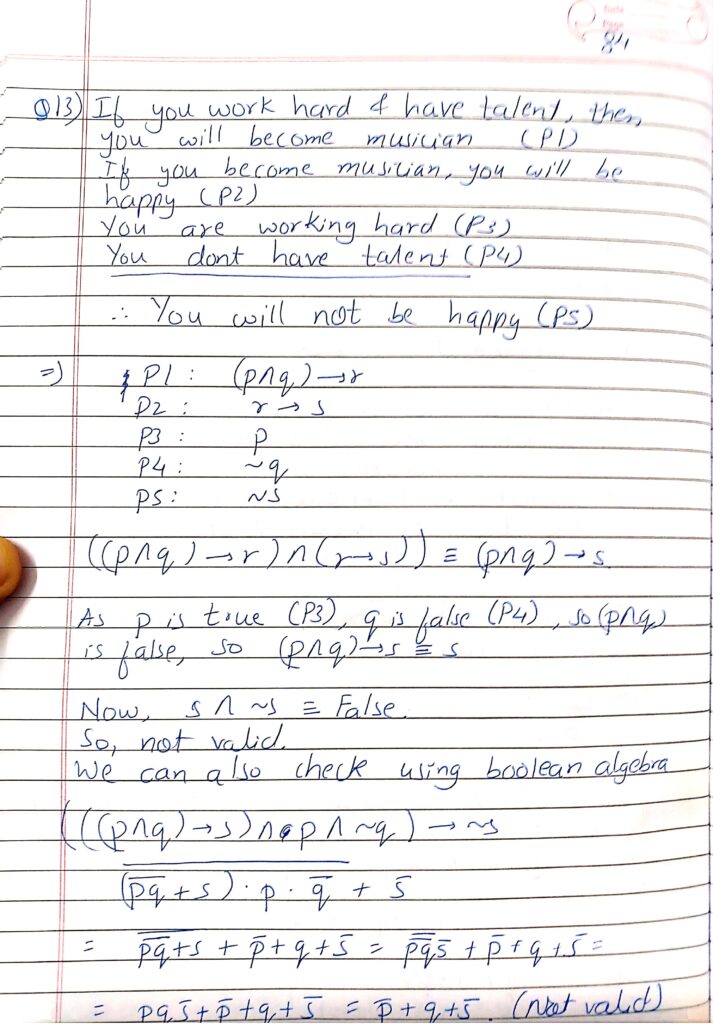 Date
Page
84
Q13) If you work hard & have talent, then
you will become musician (P1)
If you become musician, you will be
happy (P2)
You are working hard (P3)
You dont have talent (P4)
∴ You will not be happy (P5)
=> P1 : (p∧q)→r
P2 : r→s
P3 : p
P4 : ~q
P5 : ~s
((p∧q)→r)∧(r→s)) ≡ (p∧q)→s
As p is true (P3), q is false (P4), so (p∧q)
is false, so (p∧q)→s ≡ s
Now, s∧~s ≡ False.
So, not valid.
We can also check using boolean algebra
(((p∧q)→s)∧p∧~q)→~s
\overline{(\overline{pq}+s)·p·\overline{q}} + \overline{s}
= \overline{\overline{pq}+s} + \overline{p}+q+\overline{s} = \overline{\overline{pq}}\overline{s} + \overline{p}+q+\overline{s} =
= pq\overline{s}+\overline{p}+q+\overline{s} = \overline{p}+q+\overline{s} (Not valid)